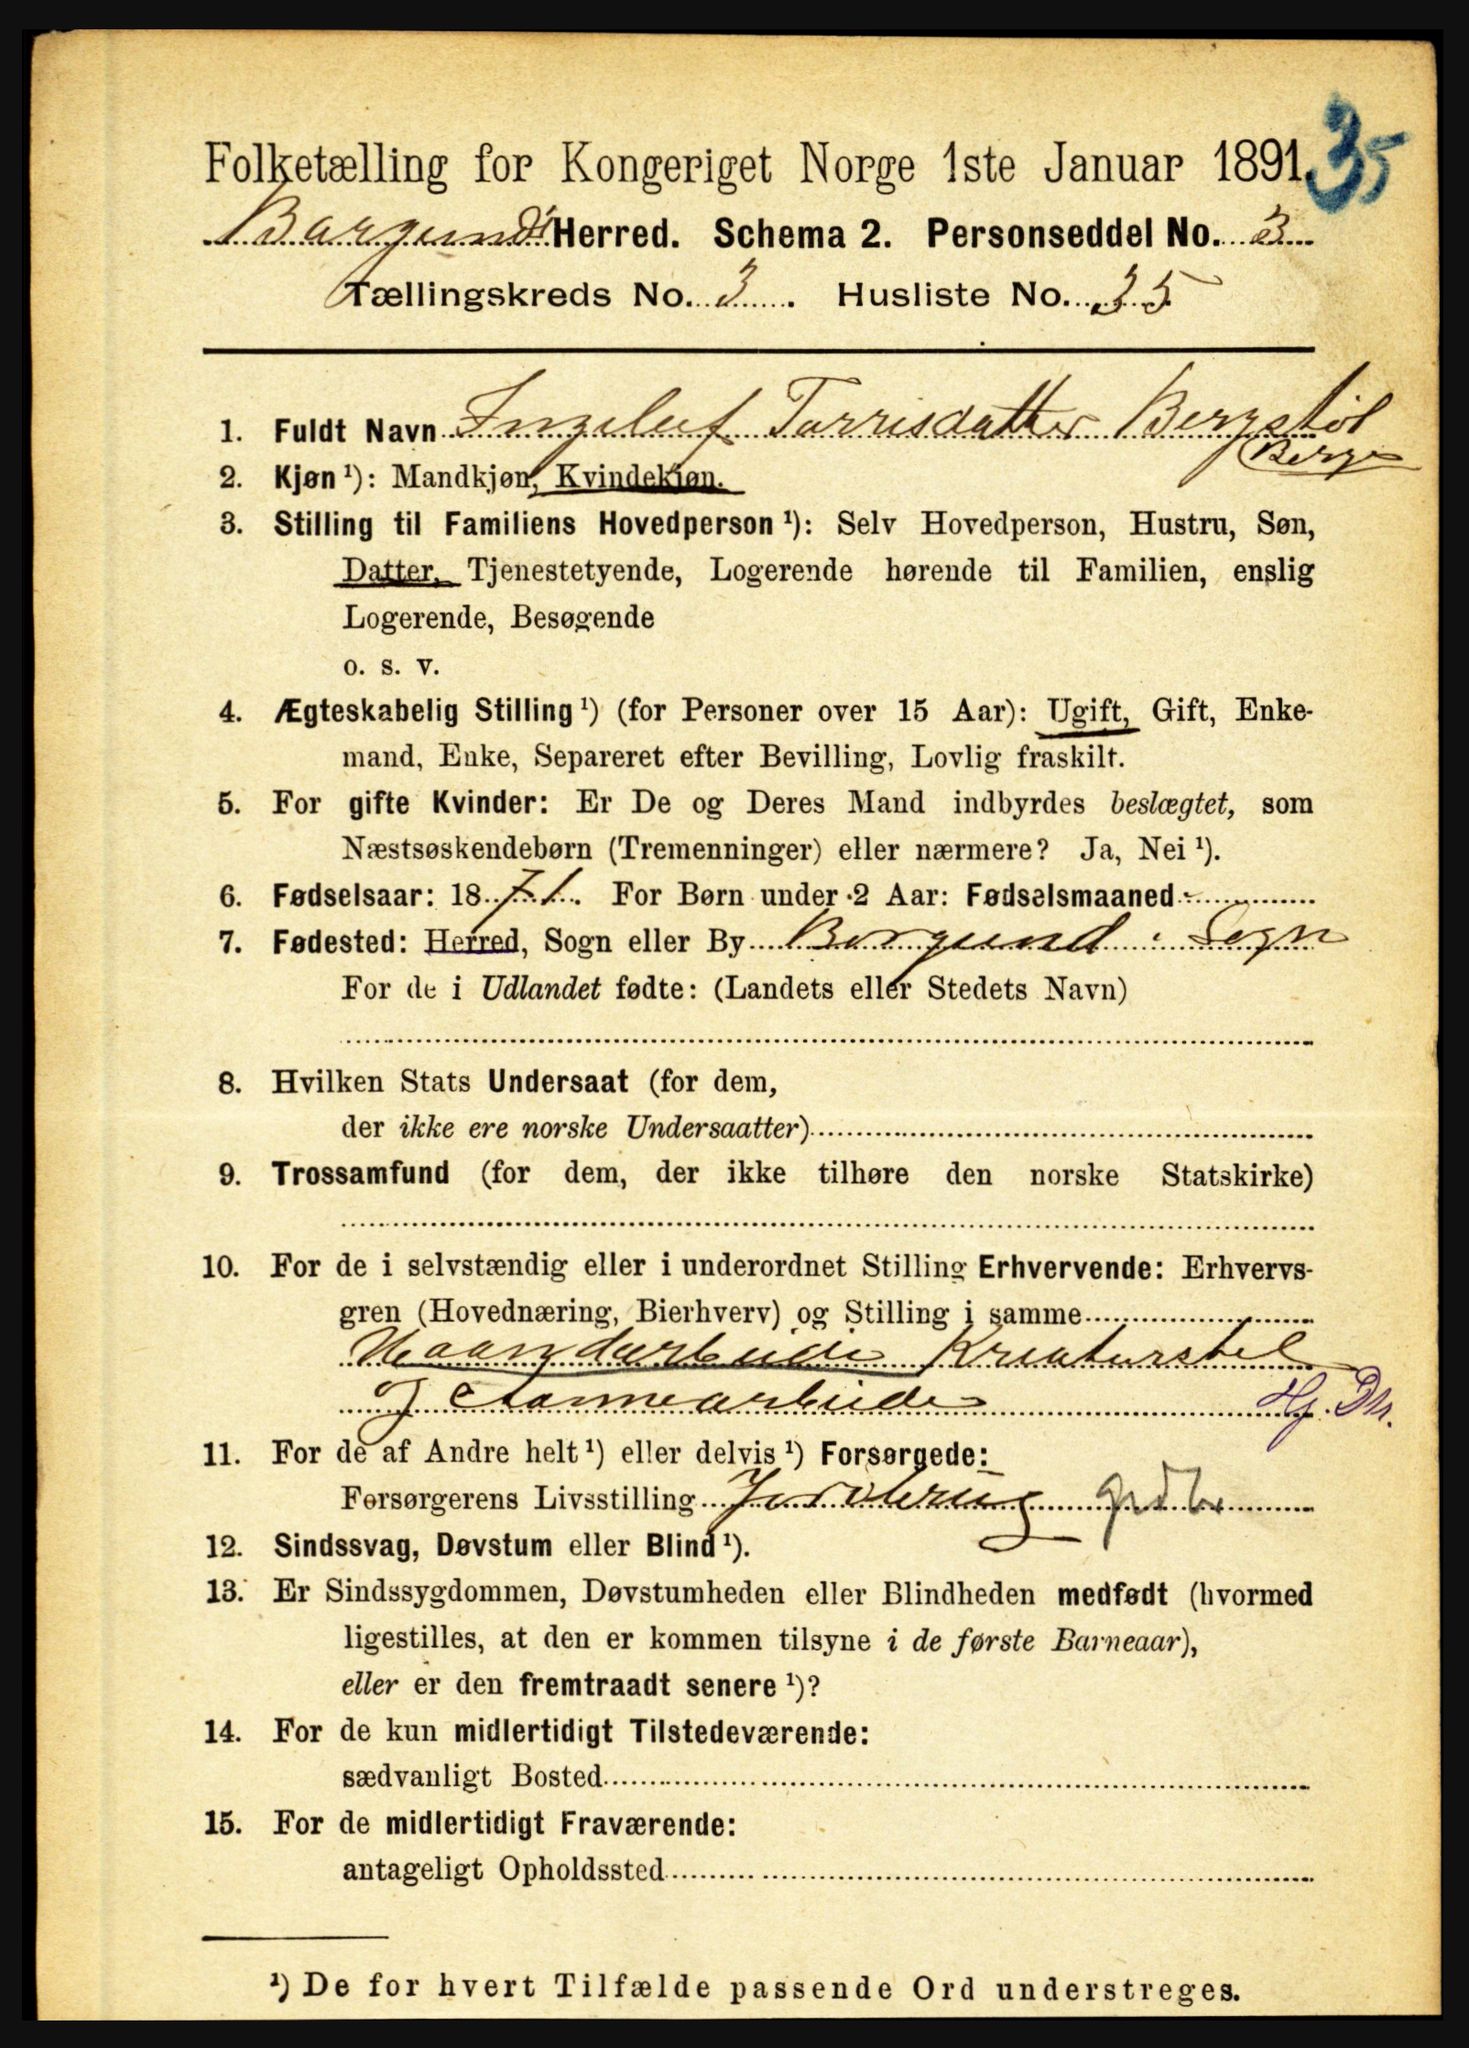 35
Folketælling for Kongeriget Norge 1ste Januar 1891.
Borgunds Herred. Schema 2. Personseddel No. 3
Tællingskreds No. 3. Husliste No. 35
1. Fuldt Navn Ingelef Torrisdatter Bergstøl
Berge
2. Kjøn ¹): Mandkjøn, Kvindekjøn.
3. Stilling til Familiens Hovedperson ¹): Selv Hovedperson, Hustru, Søn,
Datter, Tjenestetyende, Logerende hørende til Familien, enslig
Logerende, Besøgende
o. s. v.
4. Ægteskabelig Stilling ¹) (for Personer over 15 Aar): Ugift, Gift, Enke-
mand, Enke, Separeret efter Bevilling, Lovlig fraskilt.
5. For gifte Kvinder: Er De og Deres Mand indbyrdes beslægtet, som
Næstsøskendebørn (Tremenninger) eller nærmere? Ja, Nei ¹).
6. Fødselsaar: 1871. For Børn under 2 Aar: Fødselsmaaned
7. Fødested: Herred, Sogn eller By Borgund i Sogn
For de i Udlandet fødte: (Landets eller Stedets Navn)
8. Hvilken Stats Undersaat (for dem,
der ikke ere norske Undersaatter)
9. Trossamfund (for dem, der ikke tilhøre den norske Statskirke)
10. For de i selvstændig eller i underordnet Stilling Erhvervende: Erhvervs-
gren (Hovednæring, Bierhverv) og Stilling i samme
Haandarbeide Kreaturstel
og Aannearbeide Hj. Dtr.
11. For de af Andre helt ¹) eller delvis ¹) Forsørgede:
Forsørgerens Livsstilling Jordbrug gdbr
12. Sindssvag, Døvstum eller Blind ¹).
13. Er Sindssygdommen, Døvstumheden eller Blindheden medfødt (hvormed
ligestilles, at den er kommen tilsyne i de første Barneaar),
eller er den fremtraadt senere ¹)?
14. For de kun midlertidigt Tilstedeværende:
sædvanligt Bosted
15. For de midlertidigt Fraværende:
antageligt Opholdssted
¹) De for hvert Tilfælde passende Ord understreges.